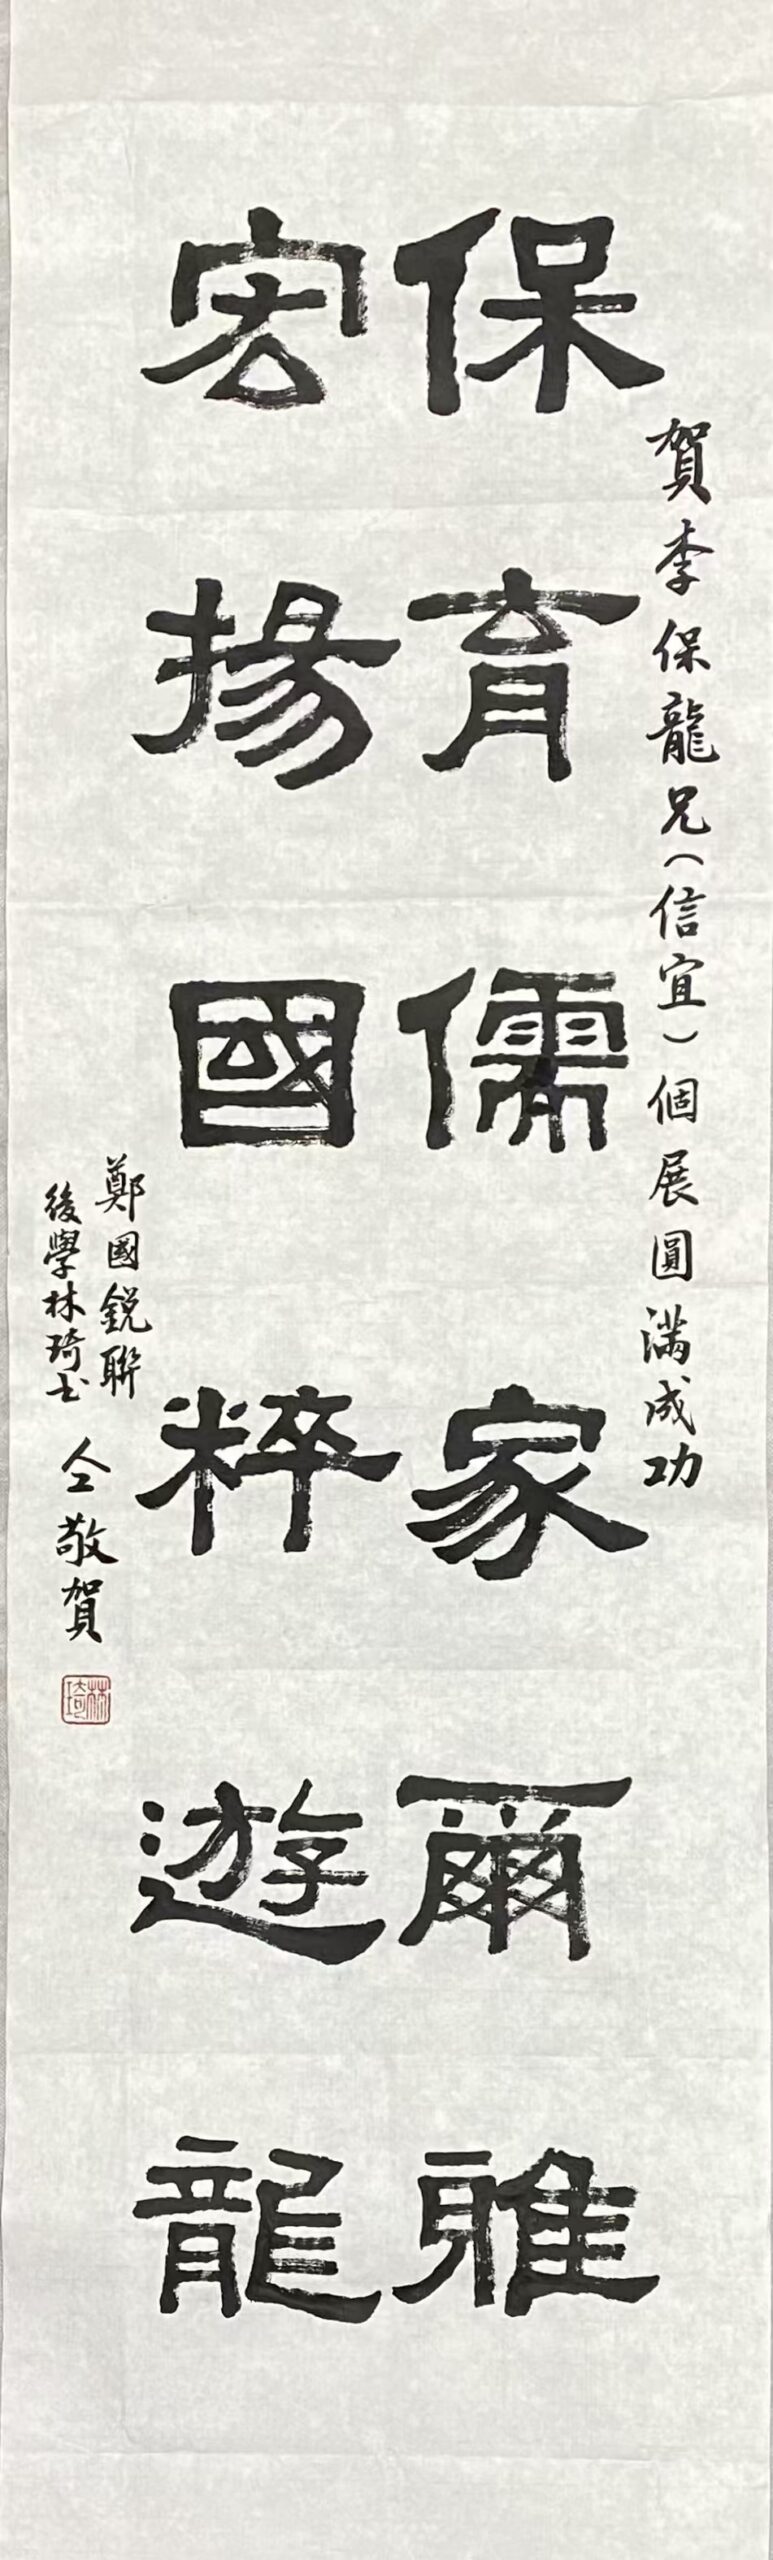 賀李保龍兄（信宜）個展圓滿成功
保育儒家爾雅
宏揚國粹遊龍
鄭國銳聯
後學林琦书
仝敬賀
林琦